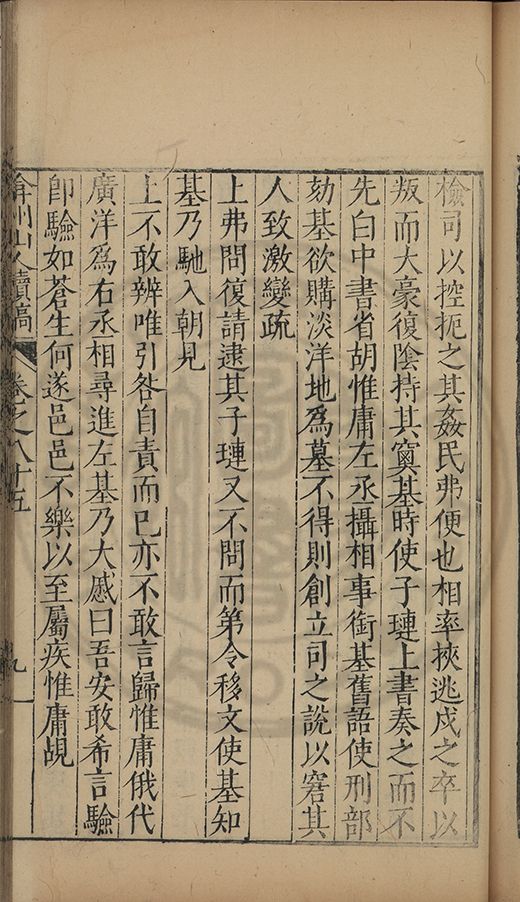 檢司以控扼之其姦民弗便也相率挾逃戍之卒以
叛而大豪復陰持其窾基時使子璉上書奏之而不
先白中書省胡惟庸左丞攝相事銜基舊語使刑部
劾基欲購淡洋地為墓不得則創立司之說以窘其
人致激變疏
上弗問復請逮其子璉又不問而第令移文使基知
基乃馳入朝見
上不敢辨唯引咎自責而已亦不敢言歸惟庸俄代
廣洋為右丞相尋進左基乃大慼曰吾安敢希言驗
卽驗如蒼生何遂邑邑不樂以至屬疾惟庸覘
弇州山人續稿 卷之八十五 九